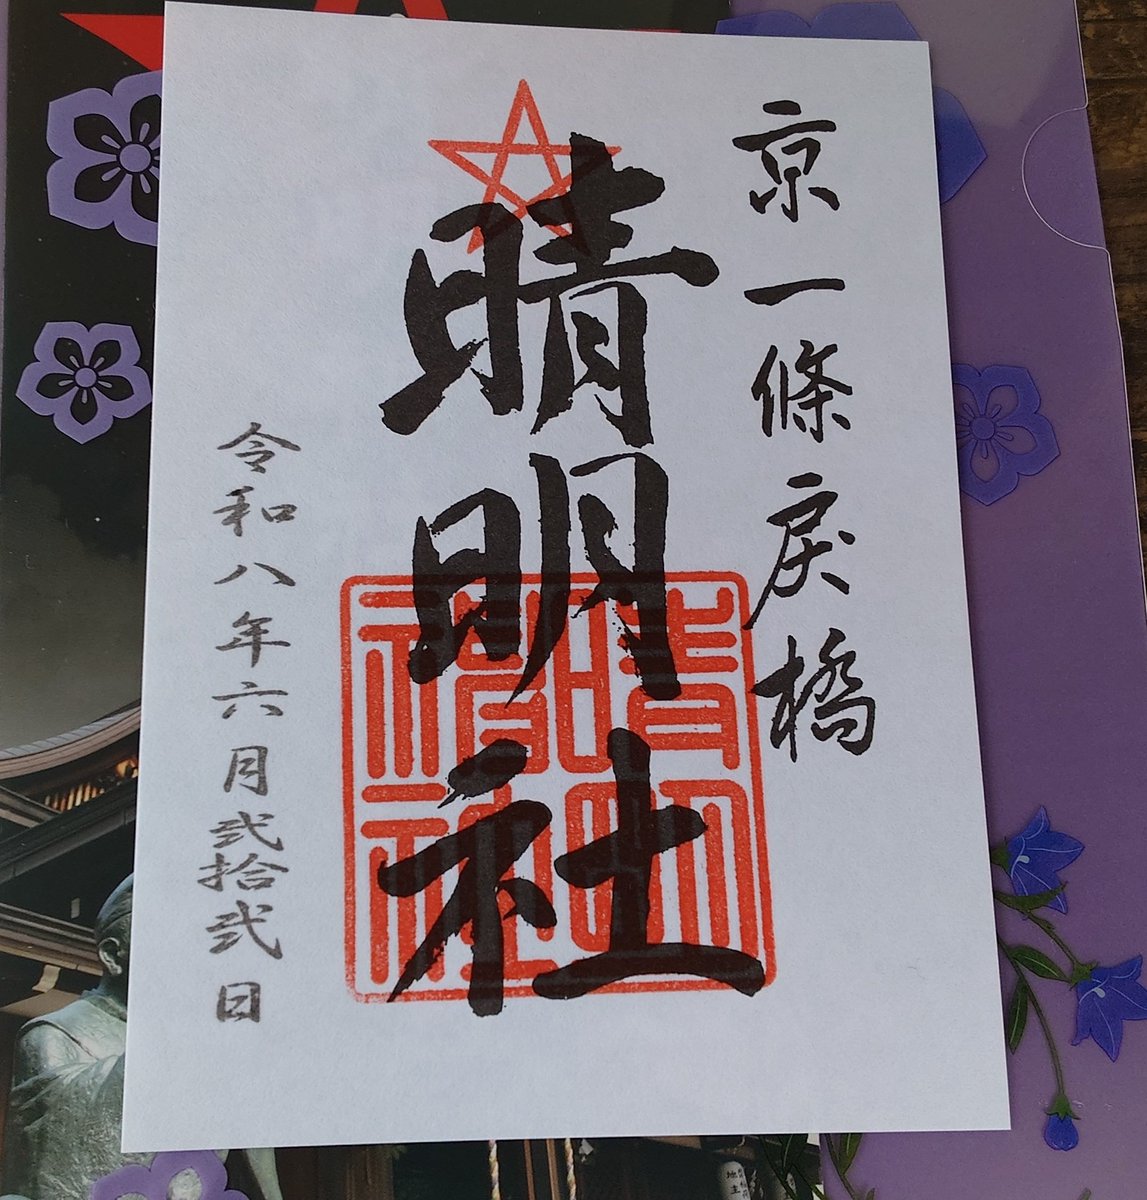 京一條戻橋
晴明社
晴明神社
令和八年六月弐拾弐日